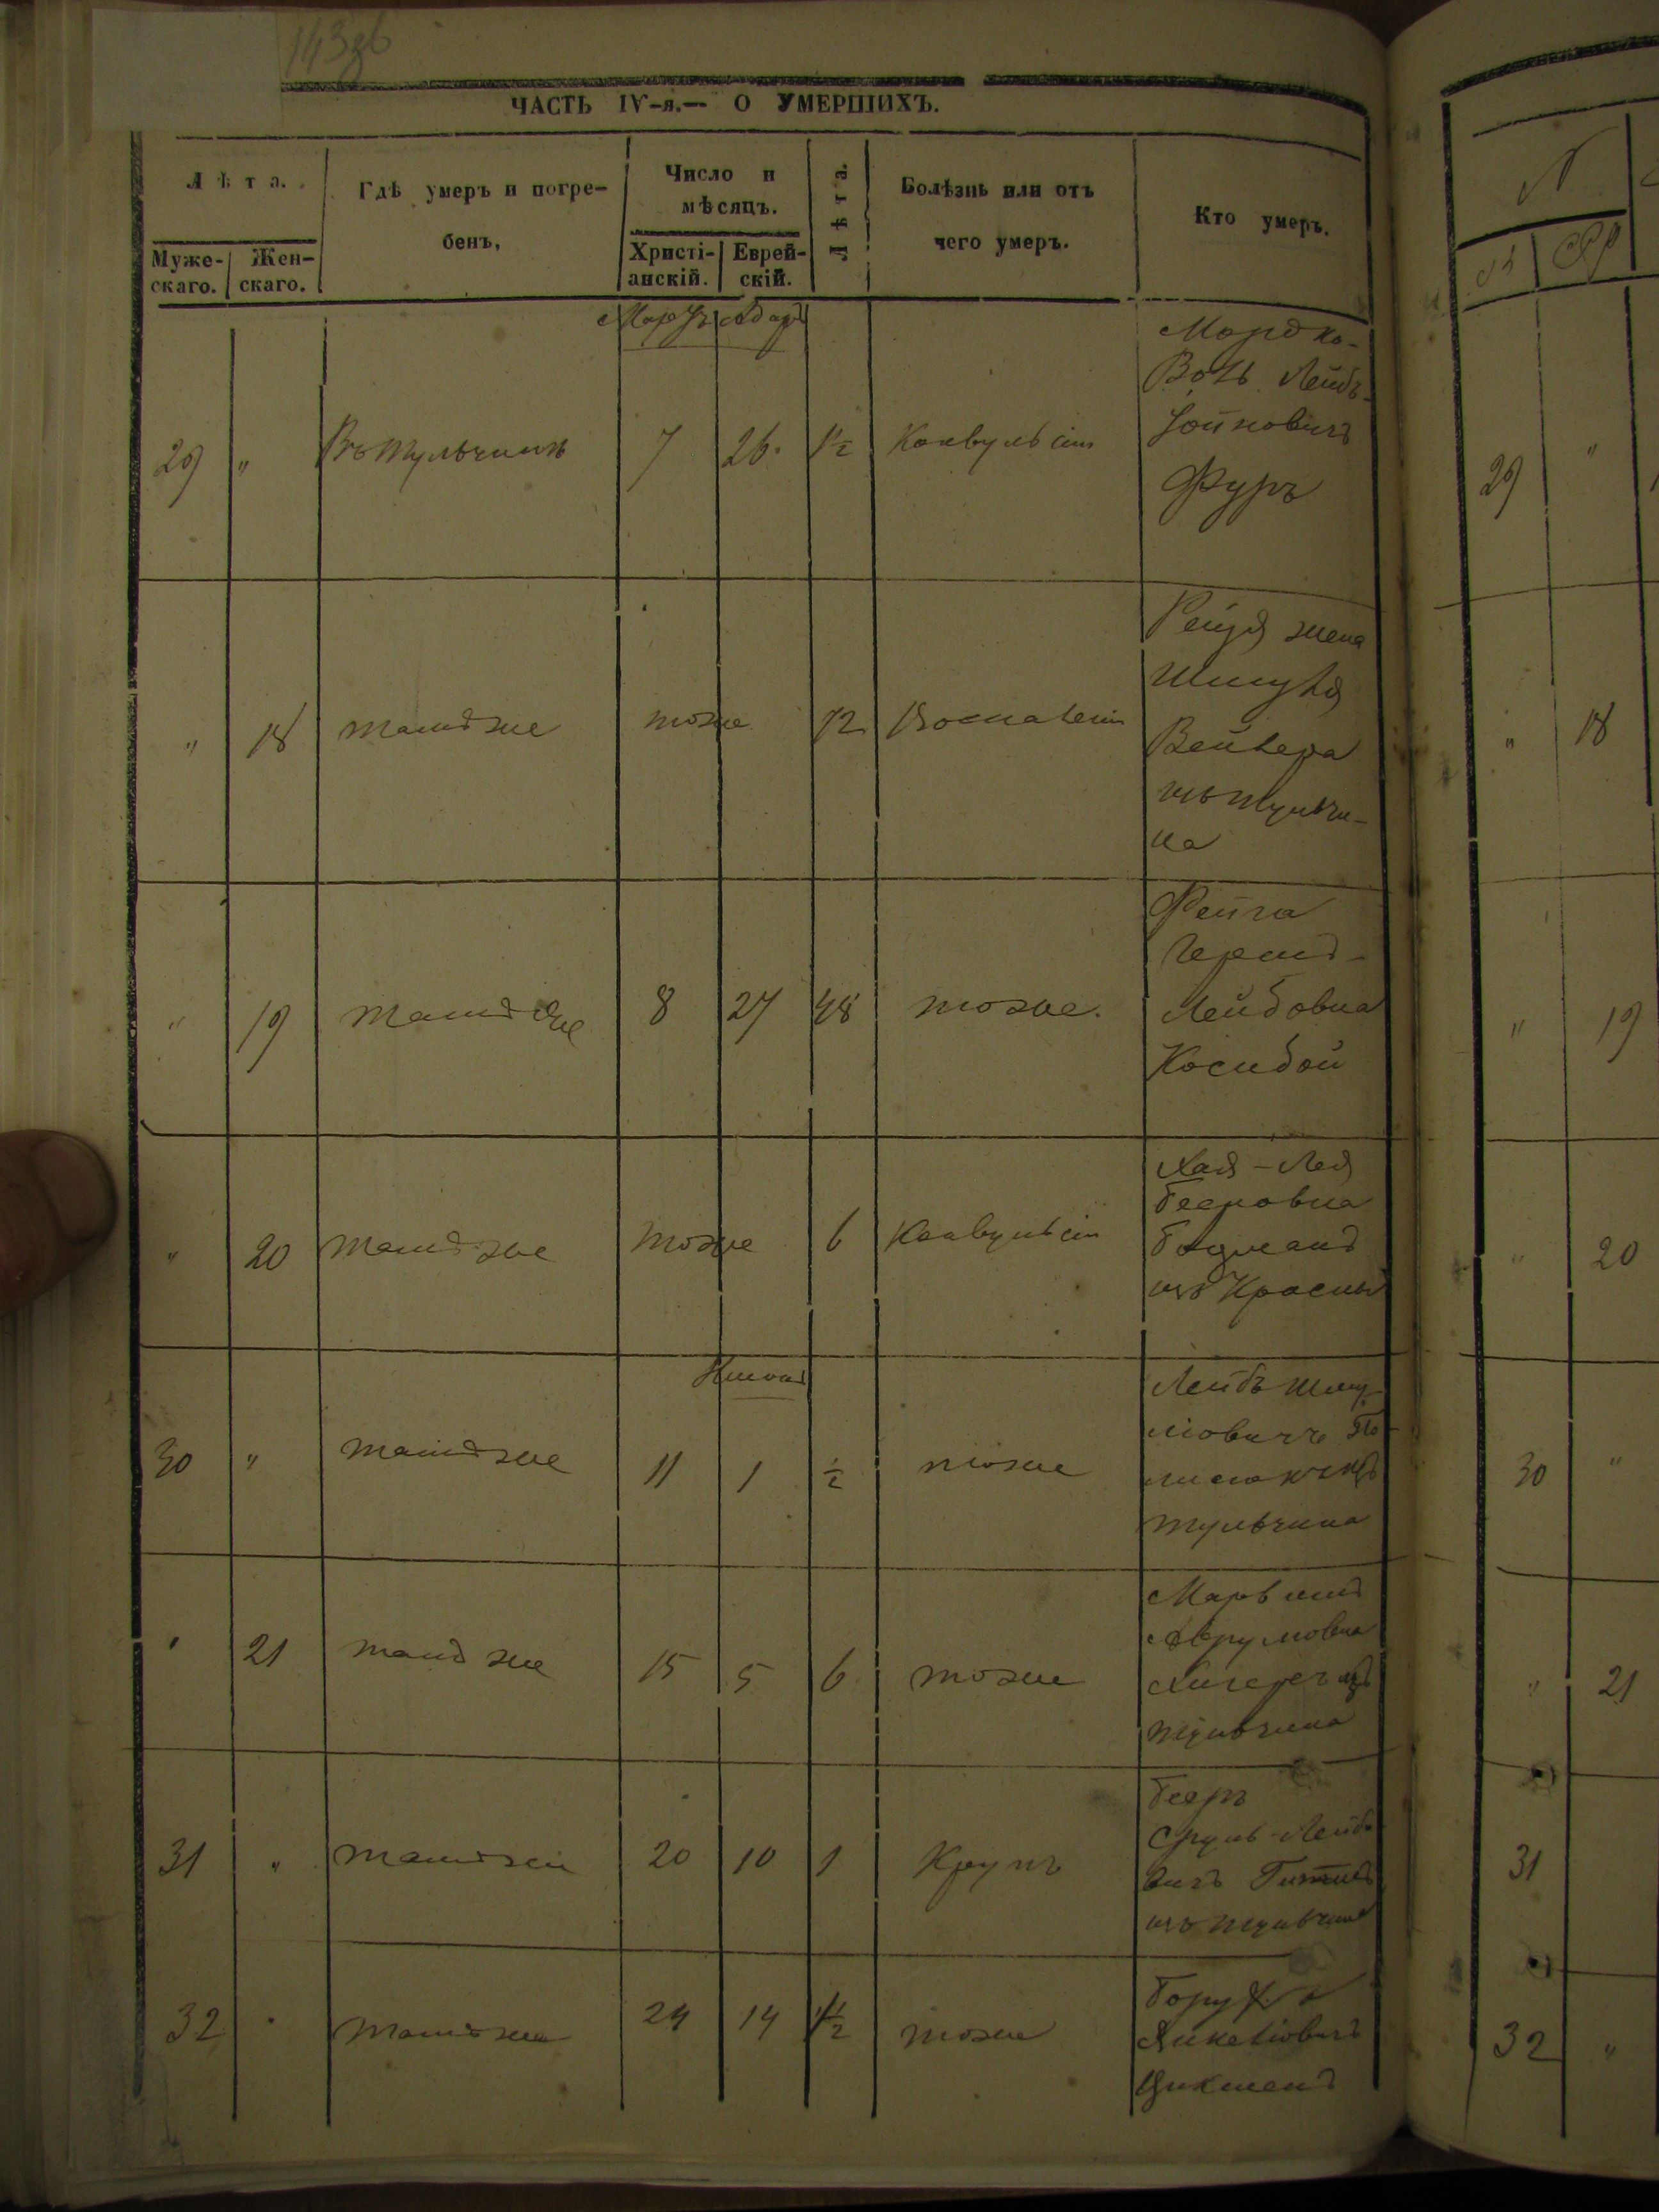 143 об
ЧАСТЬ IV-я.— О УМЕРШИХЪ.
Лѣта.
Муже-скаго. Жен-скаго.
Гдѣ умеръ и погре-
бенъ,
Число и
мѣсяцъ.
Христі-анскій. Еврей-скій.
Лѣта.
Болѣзнь или отъ
чего умеръ.
Кто умеръ.
Мартъ Адаръ
29 " Въ Тульчинѣ 7 26. 1½ Конвульсіи
Мордко-
Волъ Лейбъ-
Іойновичъ
Фуръ
" 18 тамъ же тоже 72 Воспаленія
Рейзя жена
Шмуля
Вейнера
изъ Тульчи-
на
" 19 тамъ же 8 27 48 тоже.
Фейга
Гершъ-
Лейбовна
Косибой
" 20 тамъ же тоже 6 Конвульсіи
Хая-Лея
Бееровна
изъ Красны
Нисонъ
30 " тамъ же 11 1 ½ тоже
Лейбъ Шму-
ліовичъ
Тульчина
" 21 тамъ же 15 5 6 тоже
Абрумовна
изъ
Тульчина
31 " тамъ же 20 10 1 Крупъ
Бееръ
Сруль-Лейбо
вичъ
изъ Тульчина
32 " тамъ же 24 14 тоже
Борухъ
Янкеліовичъ
Цихманъ
29 "
" 18
" 19
" 20
30 "
" 21
31
32 "